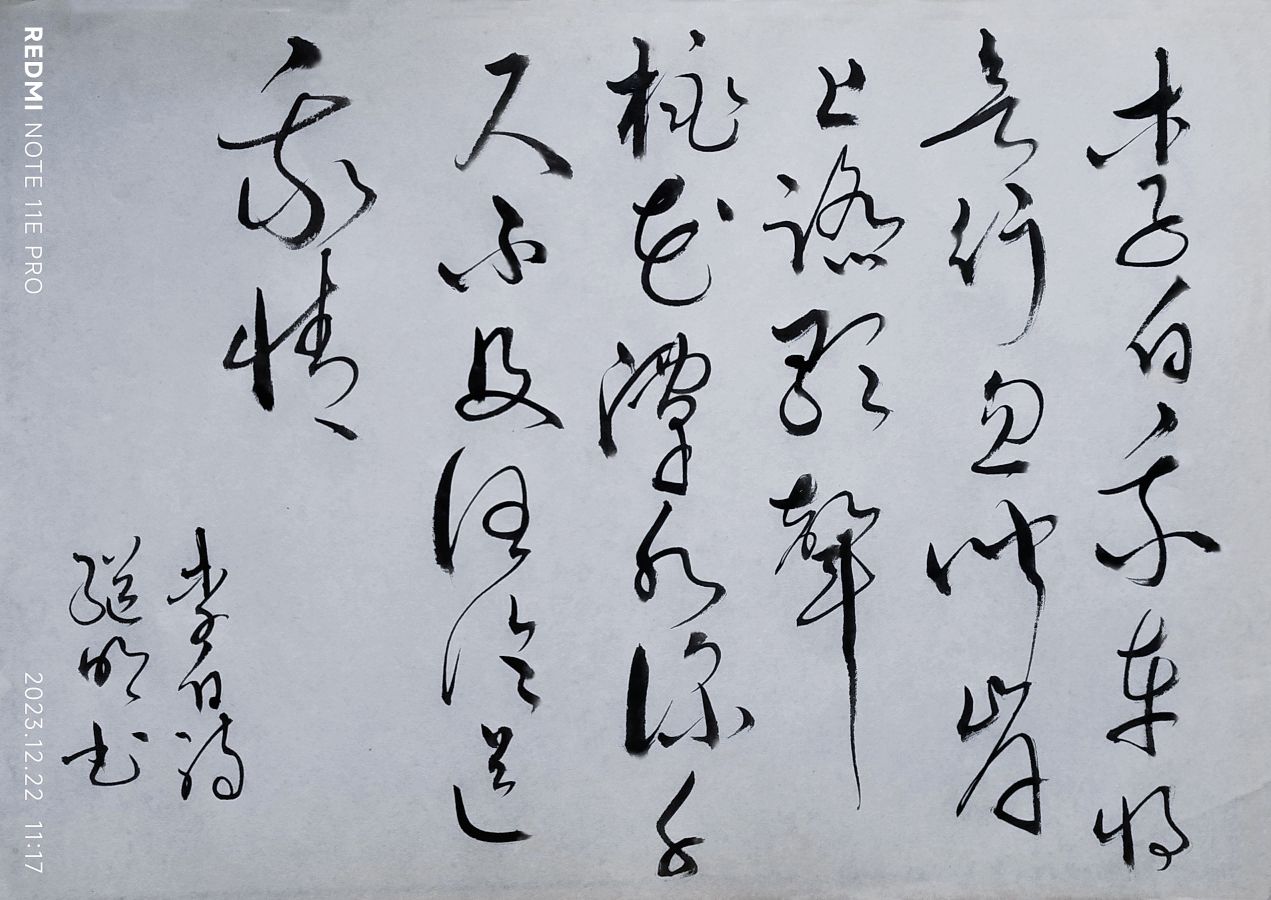 李白乘舟將
欲行忽聞岸
上踏歌聲
桃花潭水深千
尺不及汪倫送
我情
李白詩
明书
REDMI NOTE 11E PRO
2023.12.22 11:17